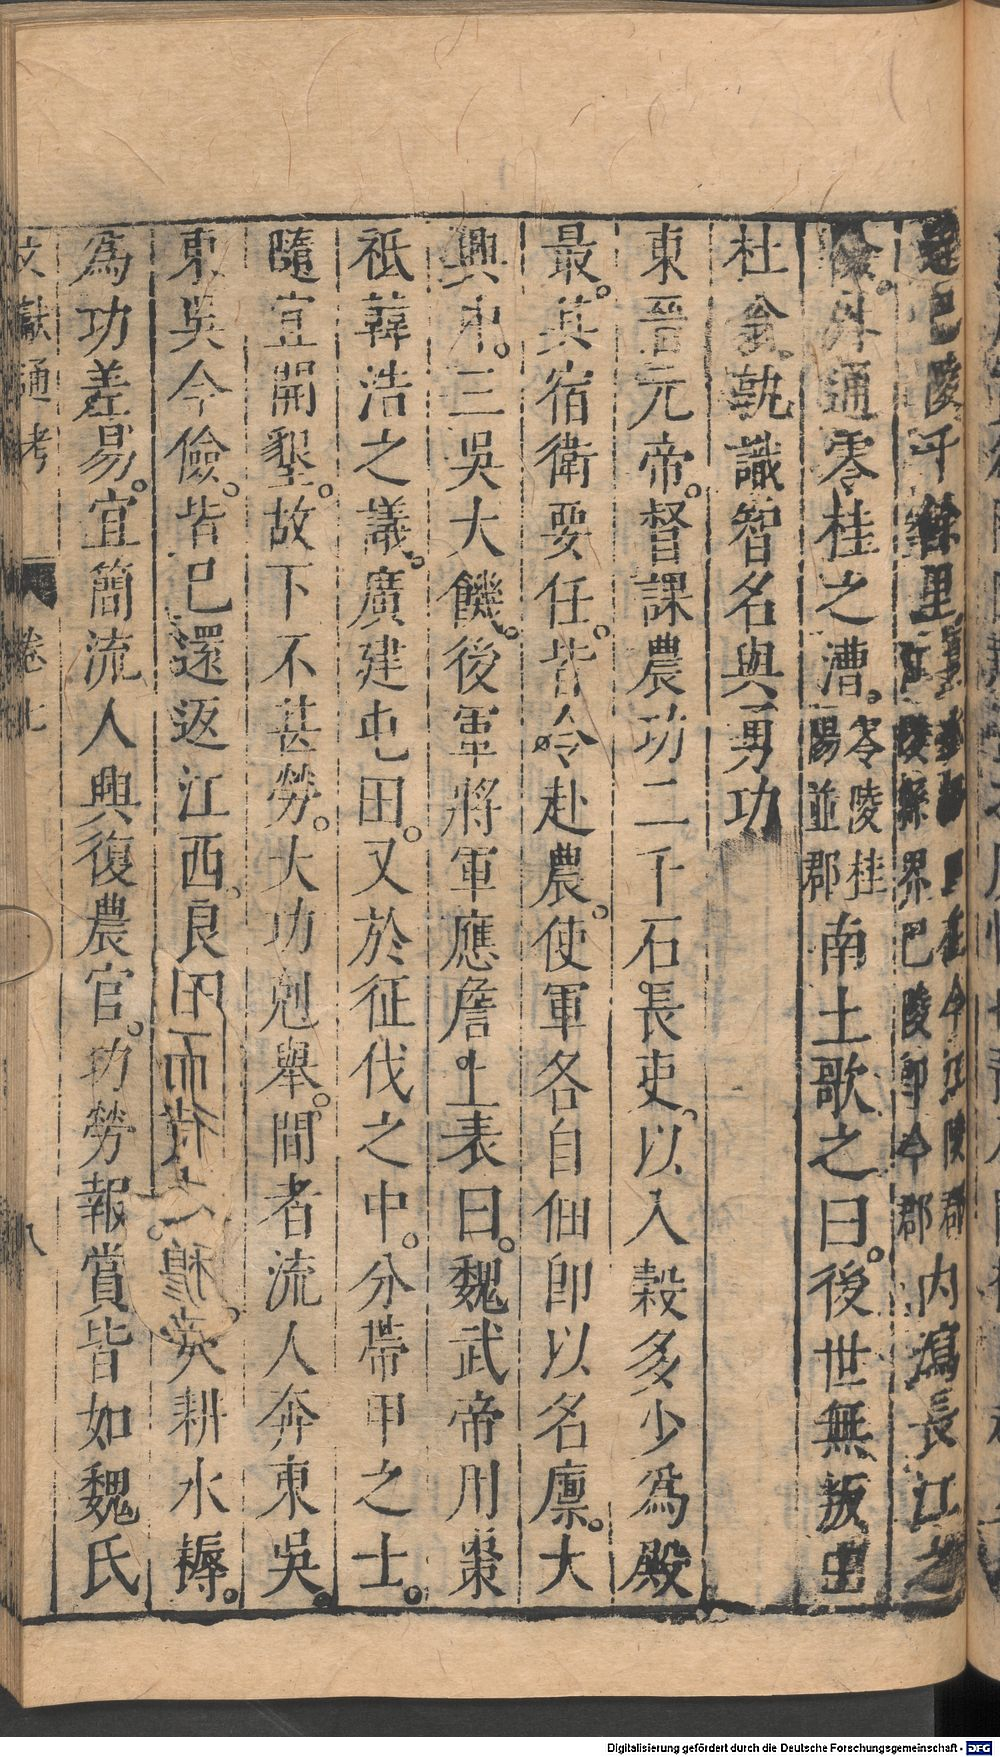 達巴陵千餘里夏水口在今江陵郡江陵縣界巴陵即今郡內瀉長江之
險外通零桂之漕零陵桂陽並郡南土歌之曰後世無叛由
杜翁孰識智名與勇功
東晉元帝督課農功二千石長吏以入穀多少為殿
最其宿衛要任皆令赴農使軍各自佃即以名廩大
興中三吳大饑後軍將軍應詹上表曰魏武帝用棗
祗韓浩之議廣建屯田又於征伐之中分帶甲之士
隨宜開墾故下不甚勞大功剋舉間者流人奔東吳
東吳今儉皆已還返江西良田曠廢耕水耨
為功差易宜簡流人興復農官功勞報賞皆如魏氏
文獻通考 卷七 八
Digitalisierung gefördert durch die Deutsche Forschungsgemeinschaft - DFG